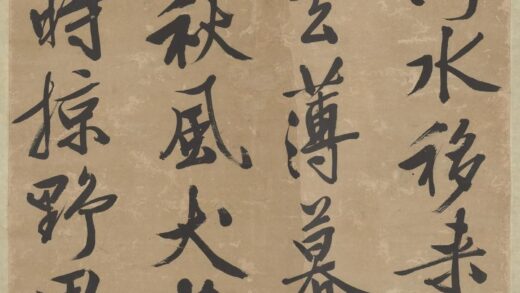 水移来
薄暮
秋風犬
時掠野